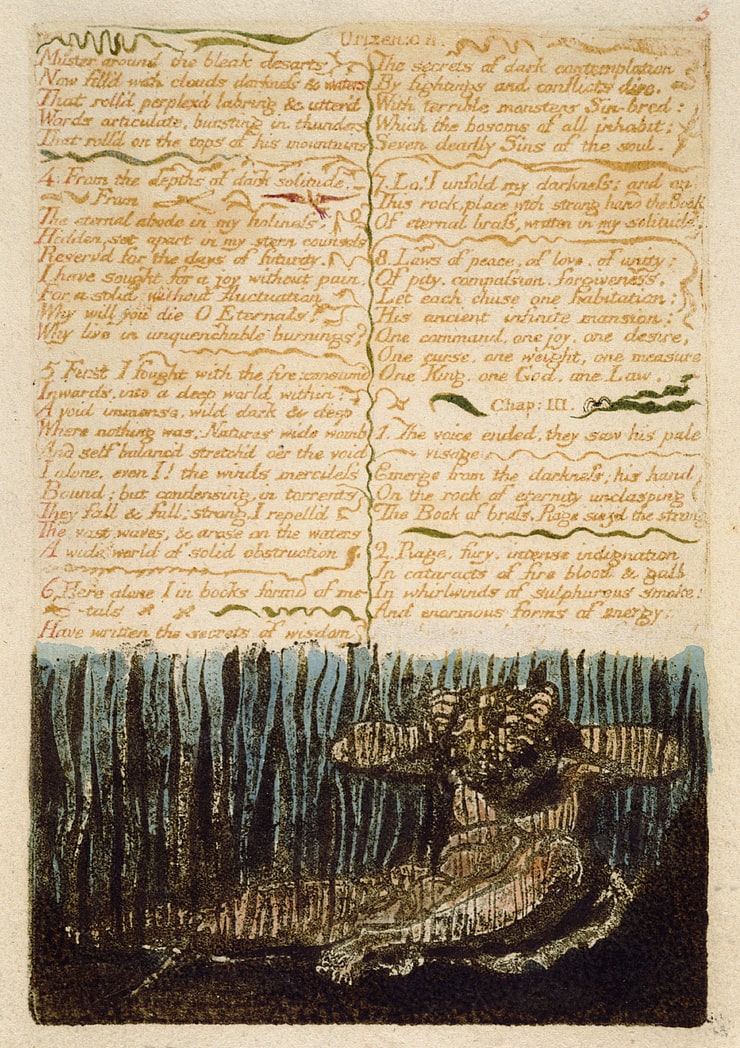 Urizen: C II.
Muster around the bleak desarts
Now fill'd with clouds, darkness & waters
That roll'd perplex'd labring & utter'd
Words articulate, bursting in thunders
That roll'd on the tops of his mountains
4: From the depths of dark solitude.
From
The eternal abode in my holiness,
Hidden, set apart in my stern counsels
Reserv'd for the days of futurity,
I have sought for a joy without pain,
For a solid without fluctuation
Why will you die O Eternals?
Why live in unquenchable burnings?
5 First I fought with the fire; consum'd
Inwards, into a deep world within:
A void immense, wild dark & deep,
Where nothing was; Natures wide womb
And self balanc'd stretch'd o'er the void
I alone, even I! the winds merciless
Bound; but condensing, in torrents
They fall & fall; strong I repell'd
The vast waves, & arose on the waters
A wide world of solid obstruction
6. Here alone I in books form'd of me-
-tals
Have written the secrets of wisdom
The secrets of dark contemplation
By fightings and conflicts dire,
With terrible monsters Sin-bred:
Which the bosoms of all inhabit;
Seven deadly Sins of the soul.
7. Lo! I unfold my darkness: and on
This rock, place with strong hand the Book
Of eternal brass, written in my solitude.
8. Laws of peace, of love, of unity:
Of pity, compassion, forgiveness.
Let each chuse one habitation:
His ancient infinite mansion:
One command, one joy, one desire,
One curse, one weight, one measure
One King, one God, one Law.
Chap: III.
1. The voice ended, they saw his pale
visage
Emerge from the darkness; his hand
On the rock of eternity unclasping
The Book of brass. Rage siez'd the strong
2. Rage, fury, intense indignation
In cataracts of fire blood & gall
In whirlwinds of sulphurous smoke:
And enormous forms of energy;